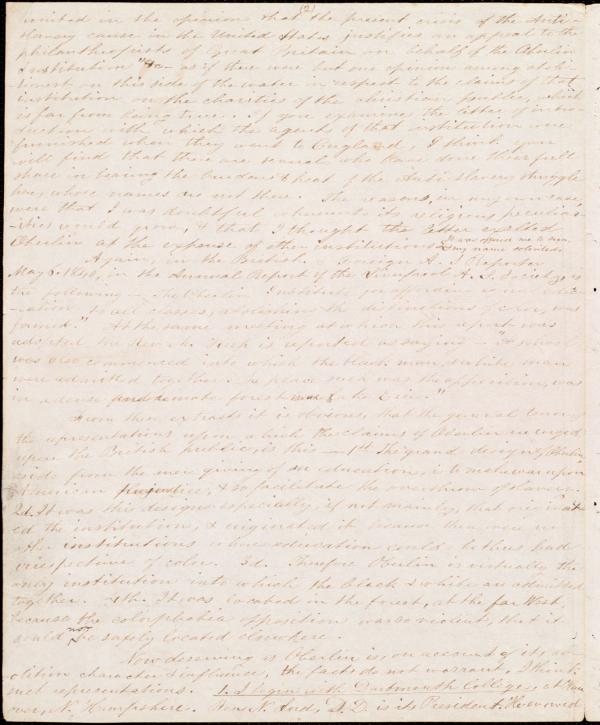 (2)
united in the opinion that the present crisis of the Anti-
slavery cause in the United States justifies an appeal to the
philanthropists of Great Britain on behalf of the Oberlin
Institution "&c— as if there were but one opinion among aboli-
tionists on this side of the water in respect to the claims of that
institution on the charities of the christian public, which
is far from being true. If you examine the letters of intro-
duction with which the agents of that institution were
furnished when they went to England, I think you
will find that there are several who have done their full
share in bearing the burden & heat of the Anti slavery struggle
here, whose names are not there. The reasons, in my own case,
were that I was doubtful whereunto its religious peculiar-
ities would grow, & that I thought the letter exalted
Oberlin at the expense of other institutions. It was offered me to sign,
& my name solicited.
Again, in the British & Foreign A. S. Reporter
May 6. 1840, in the Annual Report of the Liverpool A. S. Society is
the following — "The Oberlin Institute, for affording
to all classes, abolishing the distinctions of color, was
formed." At the same meeting at which this report was
adopted the Rev. Mr. Keep is reported as saying — "A school
was also commenced into which the black man, & white man
were admitted together. The place such was the opposition, was
in a dense and remote forest near Lake Erie."
From these extracts it is obvious, that the general tenor of
the representations upon which the claims of Oberlin are urged
upon the British public, is this — 1st. The grand design of Oberlin
aside from the mere giving of an education, is to make war upon
American prejudice, & so facilitate the overthrow of slavery.
2d. It was this design especially, if not mainly, that originat-
ed the institution, & originated it because there were no
other institutions where education could be thus had
irrespective of color. 3d. Therefore Oberlin is virtually the
only institution into which the black & white are admitted
together. 4th. It was located in the forest, at the far West,
because the colorphobia opposition was so violent, that it
could not be safely located elsewhere.
Now deserving as Oberlin is, on account of its ab-
olition character & influence, the facts do not warrant, I think,
such representations. 1. I begin with Dartmouth College, at Han-
over, N. Hampshire. Rev. N. Lord, D. D. is its President. He avowed